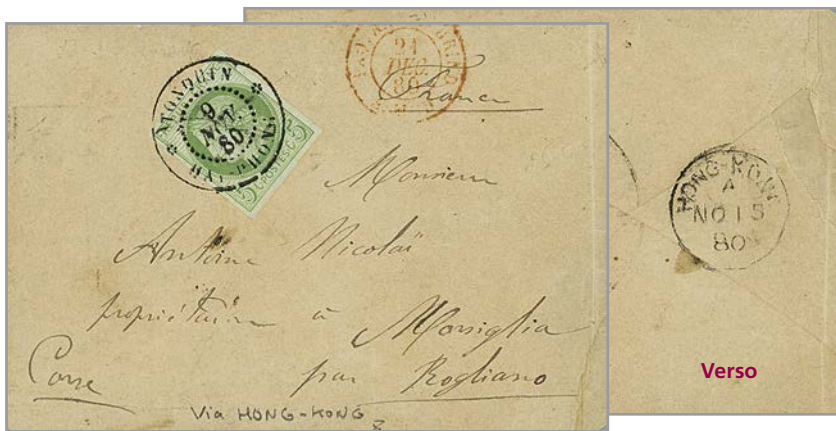 HAI-PHONG
TONQUIN
9
NOV.
80
5 C
21
DEC.
80
France
Monsieur
Antoine Nicolaï
propriétaire à Morsiglia
Corse par Rogliano
Via HONG-KONG
HONG-KONG
A
NO 15
80
Verso